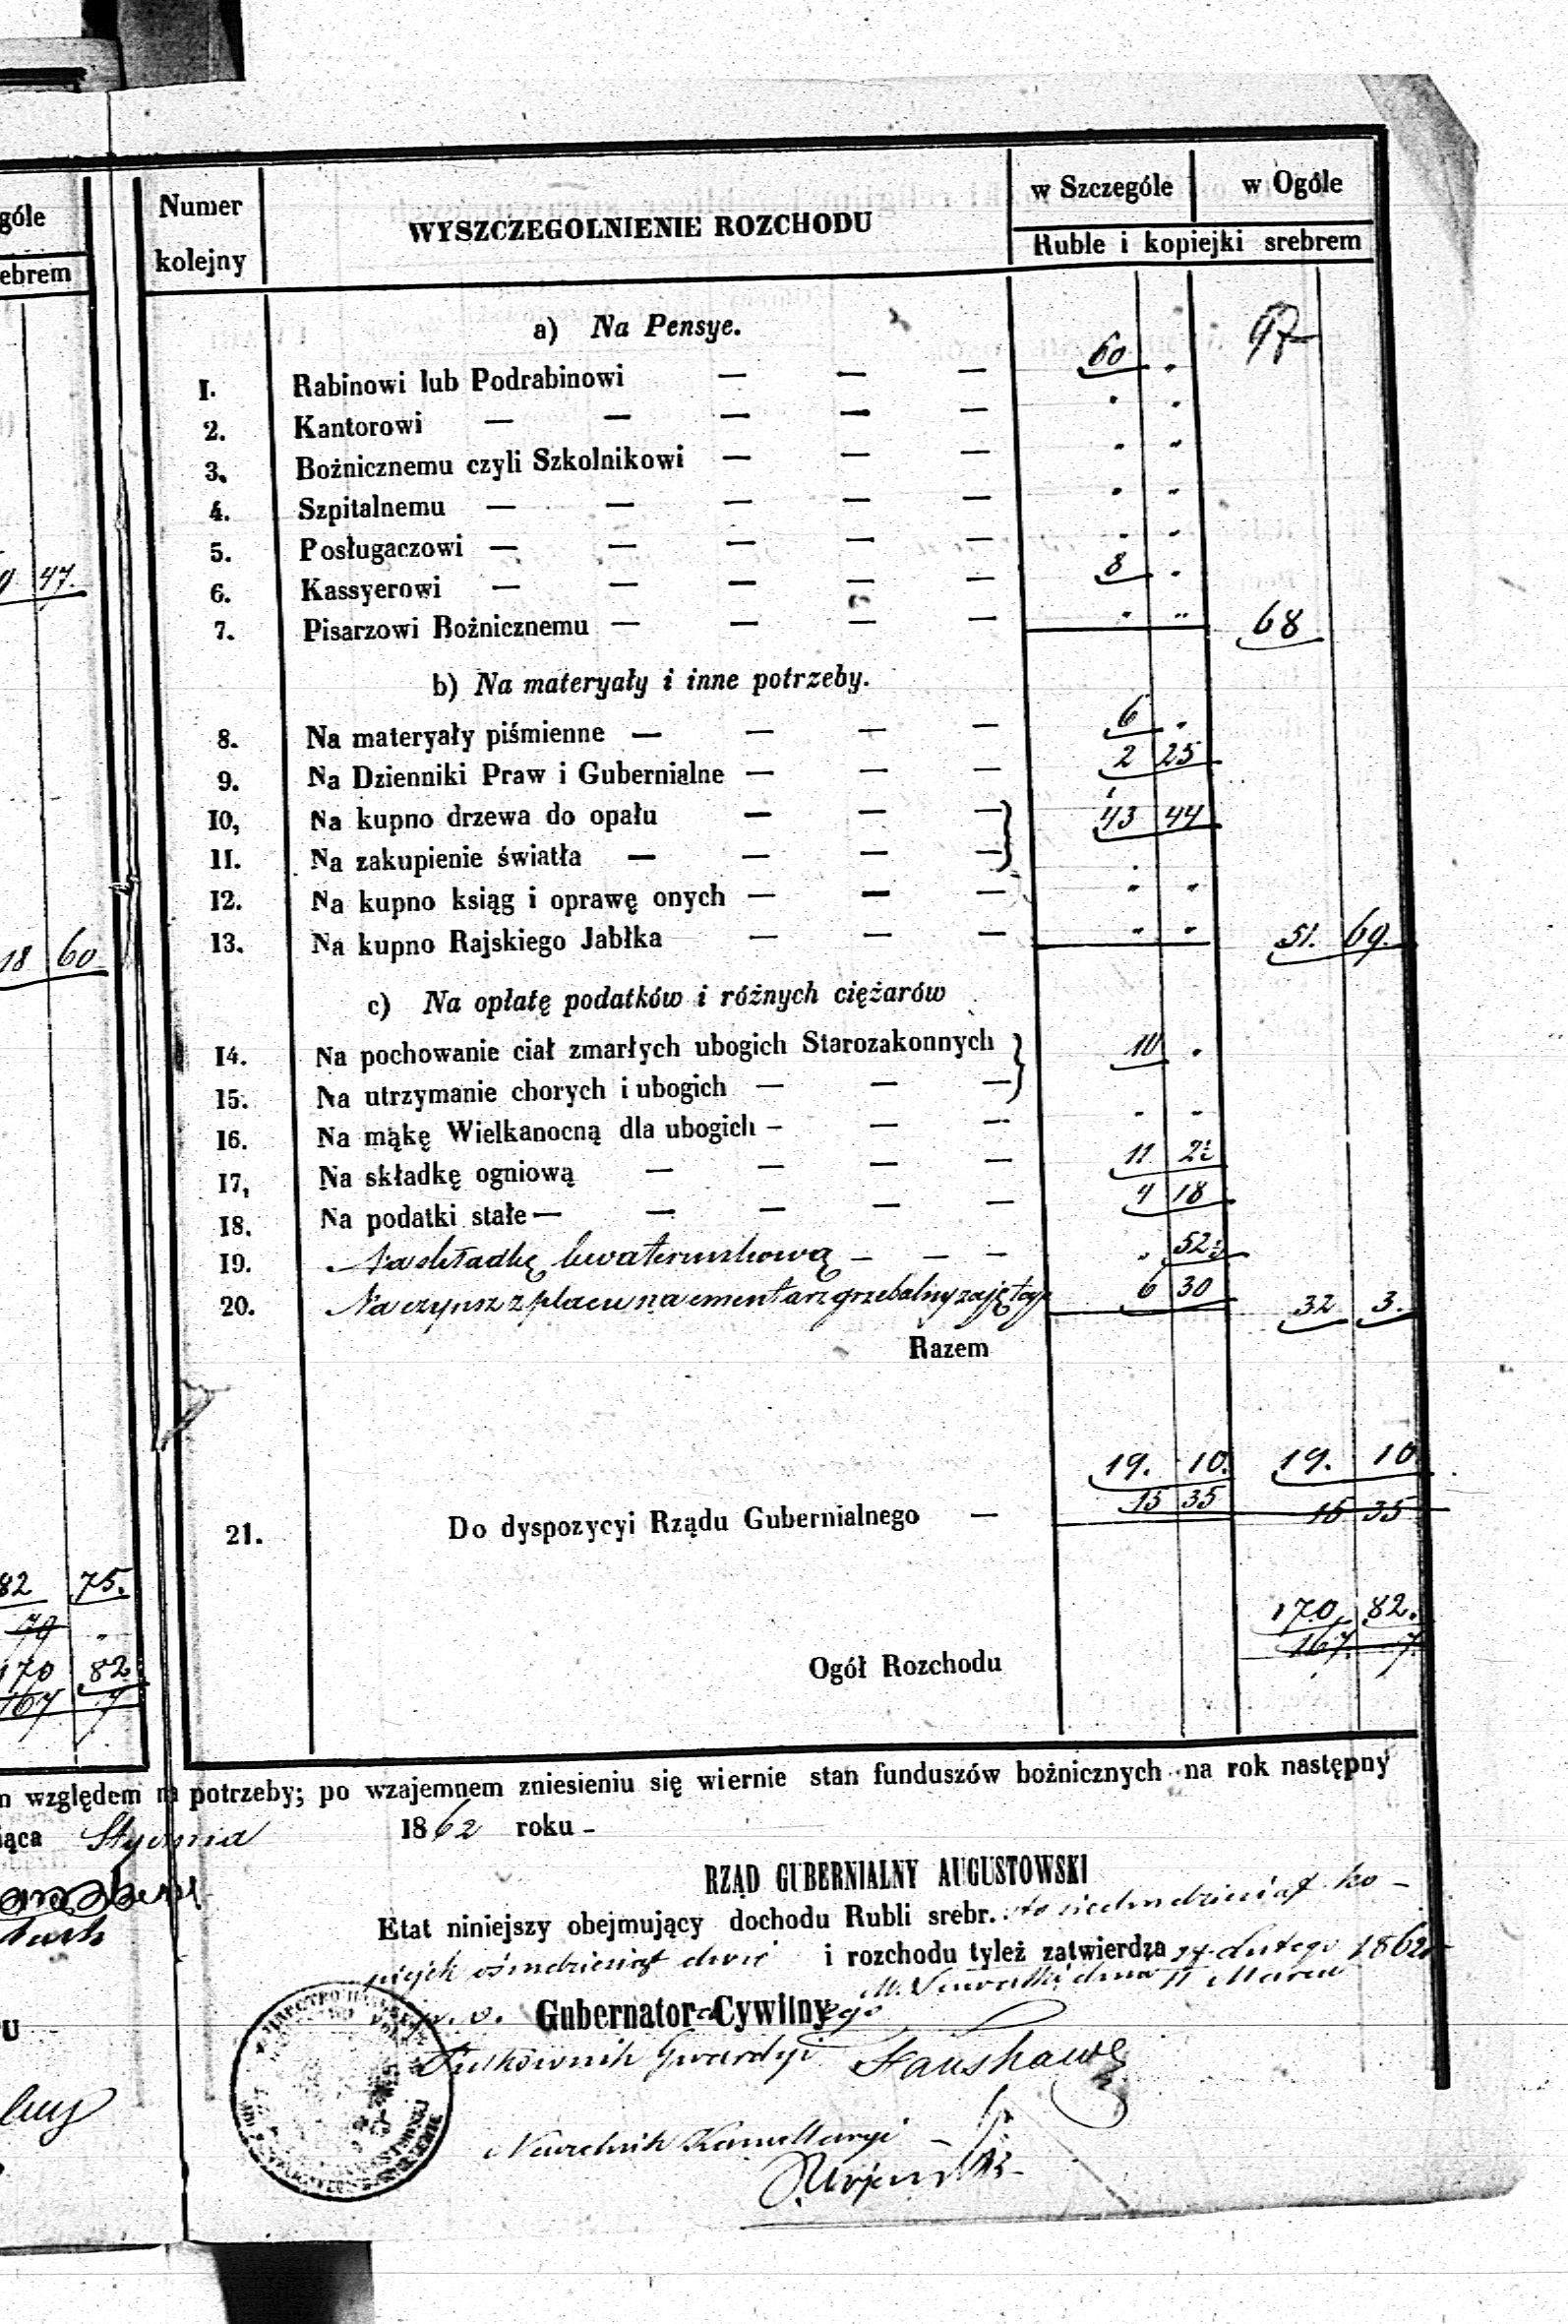 góle
rebrem
47.
18 60
82 75.
79 "
170 82
167 7
Numer kolejny WYSZCZEGOLNIENIE ROZCHODU w Szczególe w Ogóle
Ruble i kopiejki srebrem
a) Na Pensye.
1. Rabinowi lub Podrabinowi — — — 60 "
2. Kantorowi — — — — — " "
3. Bożnicznemu czyli Szkolnikowi — — — " "
4. Szpitalnemu — — — — — " "
5. Posługaczowi — — — — — " "
6. Kassyerowi — — — — — 8 "
7. Pisarzowi Bożnicznemu — — — — " " 68
b) Na materyały i inne potrzeby.
8. Na materyały piśmienne — — — — 6 "
9. Na Dzienniki Praw i Gubernialne — — — 2 25
10, Na kupno drzewa do opału — — — } 43 44
11. Na zakupienie światła — — — — }
12. Na kupno ksiąg i oprawę onych — — — " "
13. Na kupno Rajskiego Jabłka — — — " " 51. 69.
c) Na opłatę podatków i różnych ciężarów
14. Na pochowanie ciał zmarłych ubogich Starozakonnych } 10 "
15. Na utrzymanie chorych i ubogich — — — }
16. Na mąkę Wielkanocną dla ubogich — — — " "
17, Na składkę ogniową — — — — 11 2½
18. Na podatki stałe — — — — — 4 18
19. Na składkę kwaterunkową — — — " 52½
20. Na czynsz z placu na cmentarz grzebalny zajętego 6 30 32 3.
Razem
19. 10. 19. 10
21. Do dyspozycyi Rządu Gubernialnego — 15 35 15 35
170 82.
Ogół Rozchodu 167. 7.
m względem na potrzeby; po wzajemnem zniesieniu się wiernie stan funduszów bożnicznych na rok następny
iąca Stycznia 1862 roku -
RZĄD GUBERNIALNY AUGUSTOWSKI
Etat niniejszy obejmujący dochodu Rubli srebr. sto siedmdziesiąt ko-
piejek ośmdziesiąt dwie i rozchodu tyleż zatwierdza 27 Lutego 1862
M. Suwałki dnia 11 Marca
p. o. Gubernatora Cywilnego
Pułkownik Gwardyi
Naczelnik Kancellaryi